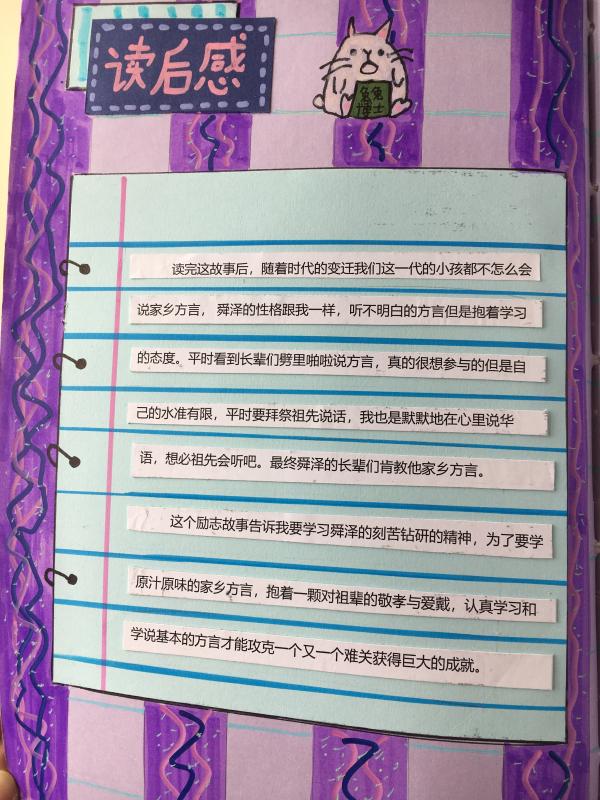 读后感
兔兔
博士
读完这故事后，随着时代的变迁我们这一代的小孩都不怎么会
说家乡方言， 舜泽的性格跟我一样，听不明白的方言但是抱着学习
的态度。平时看到长辈们劈里啪啦说方言，真的很想参与的但是自
己的水准有限，平时要拜祭祖先说话，我也是默默地在心里说华
语，想必祖先会听吧。最终舜泽的长辈们肯教他家乡方言。
这个励志故事告诉我要学习舜泽的刻苦钻研的精神，为了要学
原汁原味的家乡方言，抱着一颗对祖辈的敬孝与爱戴，认真学习和
学说基本的方言才能攻克一个又一个难关获得巨大的成就。